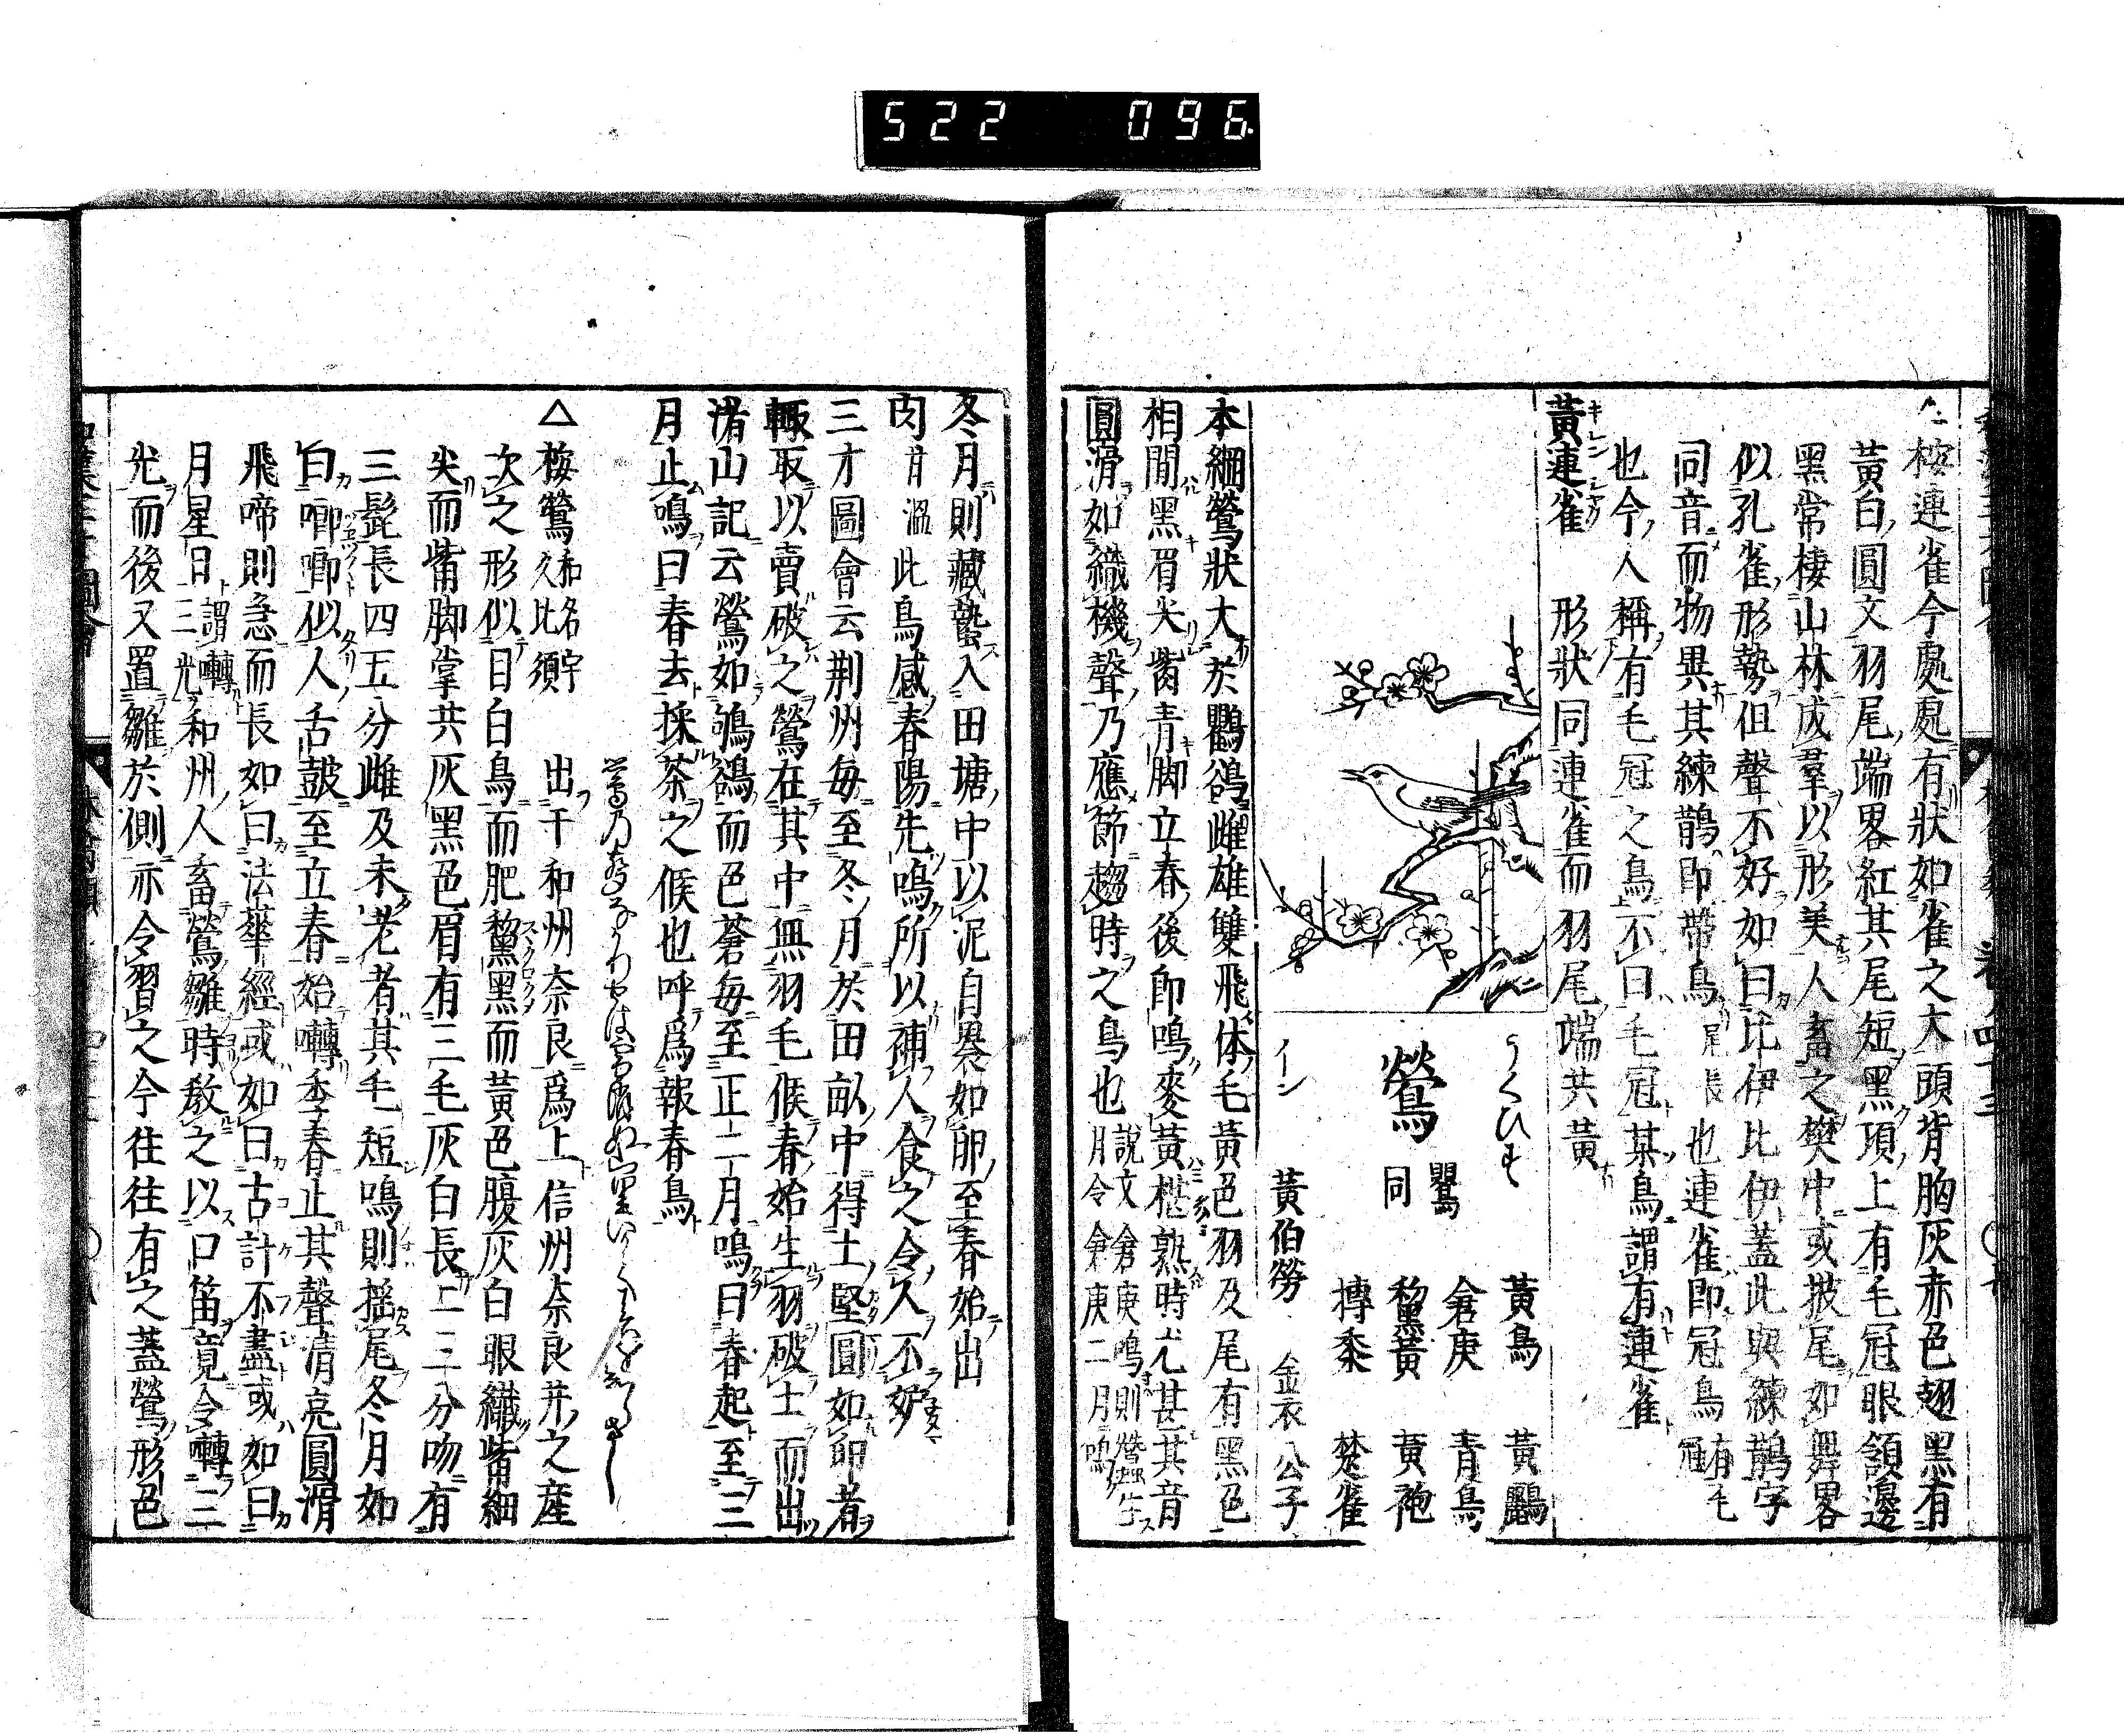 522 096
△按連雀今處處有狀如雀之大頭背胸灰赤色翅黑有
黃白圓文羽尾端畧紅其尾短黑項上有毛冠眼頷邊
黑常棲山林成羣以形美人畜之樊中或披尾如舞畧
似孔雀形勢但聲不好如曰比伊比伊蓋此與練鵲字
同音而物異其練鵲卽帶鳥尾長也連雀卽冠鳥有毛冠
也今人稱有毛冠之鳥不曰毛冠某鳥謂有連雀
黃連雀 形狀同連雀而羽尾端共黃
キレンシヤク
うくひす
鶯
鸎同
イーン
黃鳥 黃鸝
倉庚 青鳥
黧黃 黃袍
搏黍 楚雀
黃伯勞 金衣公子
本綱鶯狀大於鸜鵒雌雄雙飛体毛黃色羽及尾有黑色
相間黑眉尖觜青脚立春後卽鳴麥黃椹熟時尤甚其音
圓滑如織機聲乃應節趨時之鳥也說文倉庚鳴則蠶生月令倉庚二月鳴
冬月則藏蟄入田塘中以泥自裹如卵至春始出
肉甘溫此鳥感春陽先鳴所以補人食之令人不妒
三才圖會云荆州每至冬月於田畝中得土堅圓如卵者
輙取以賣破之鶯在其中無羽毛候春始生羽破土而出
渚山記云鶯如鴝鵒而色蒼每至正二月鳴曰春起至三
月止鳴曰春去採茶之候也呼爲報春鳥
△按鶯和名宇久比須 出于和州奈良爲上信州奈良井之産
次之形似目白鳥而肥黧黑而黃色腹灰白眼纖觜細
尖而觜脚掌共灰黑色眉有三毛灰白長二三分吻有
三髭長四五分雌及未老者其毛短鳴則揺尾冬月如
曰唧唧似人舌皷至立春始囀季春止其聲清亮圓滑
飛啼則急而長如曰法華經或如曰古計不盡或如曰
月星日謂囀三光和州人畜鶯雛時敎之以口笛竟令囀三
光而後又置雛於側亦令習之今往往有之蓋鶯形色